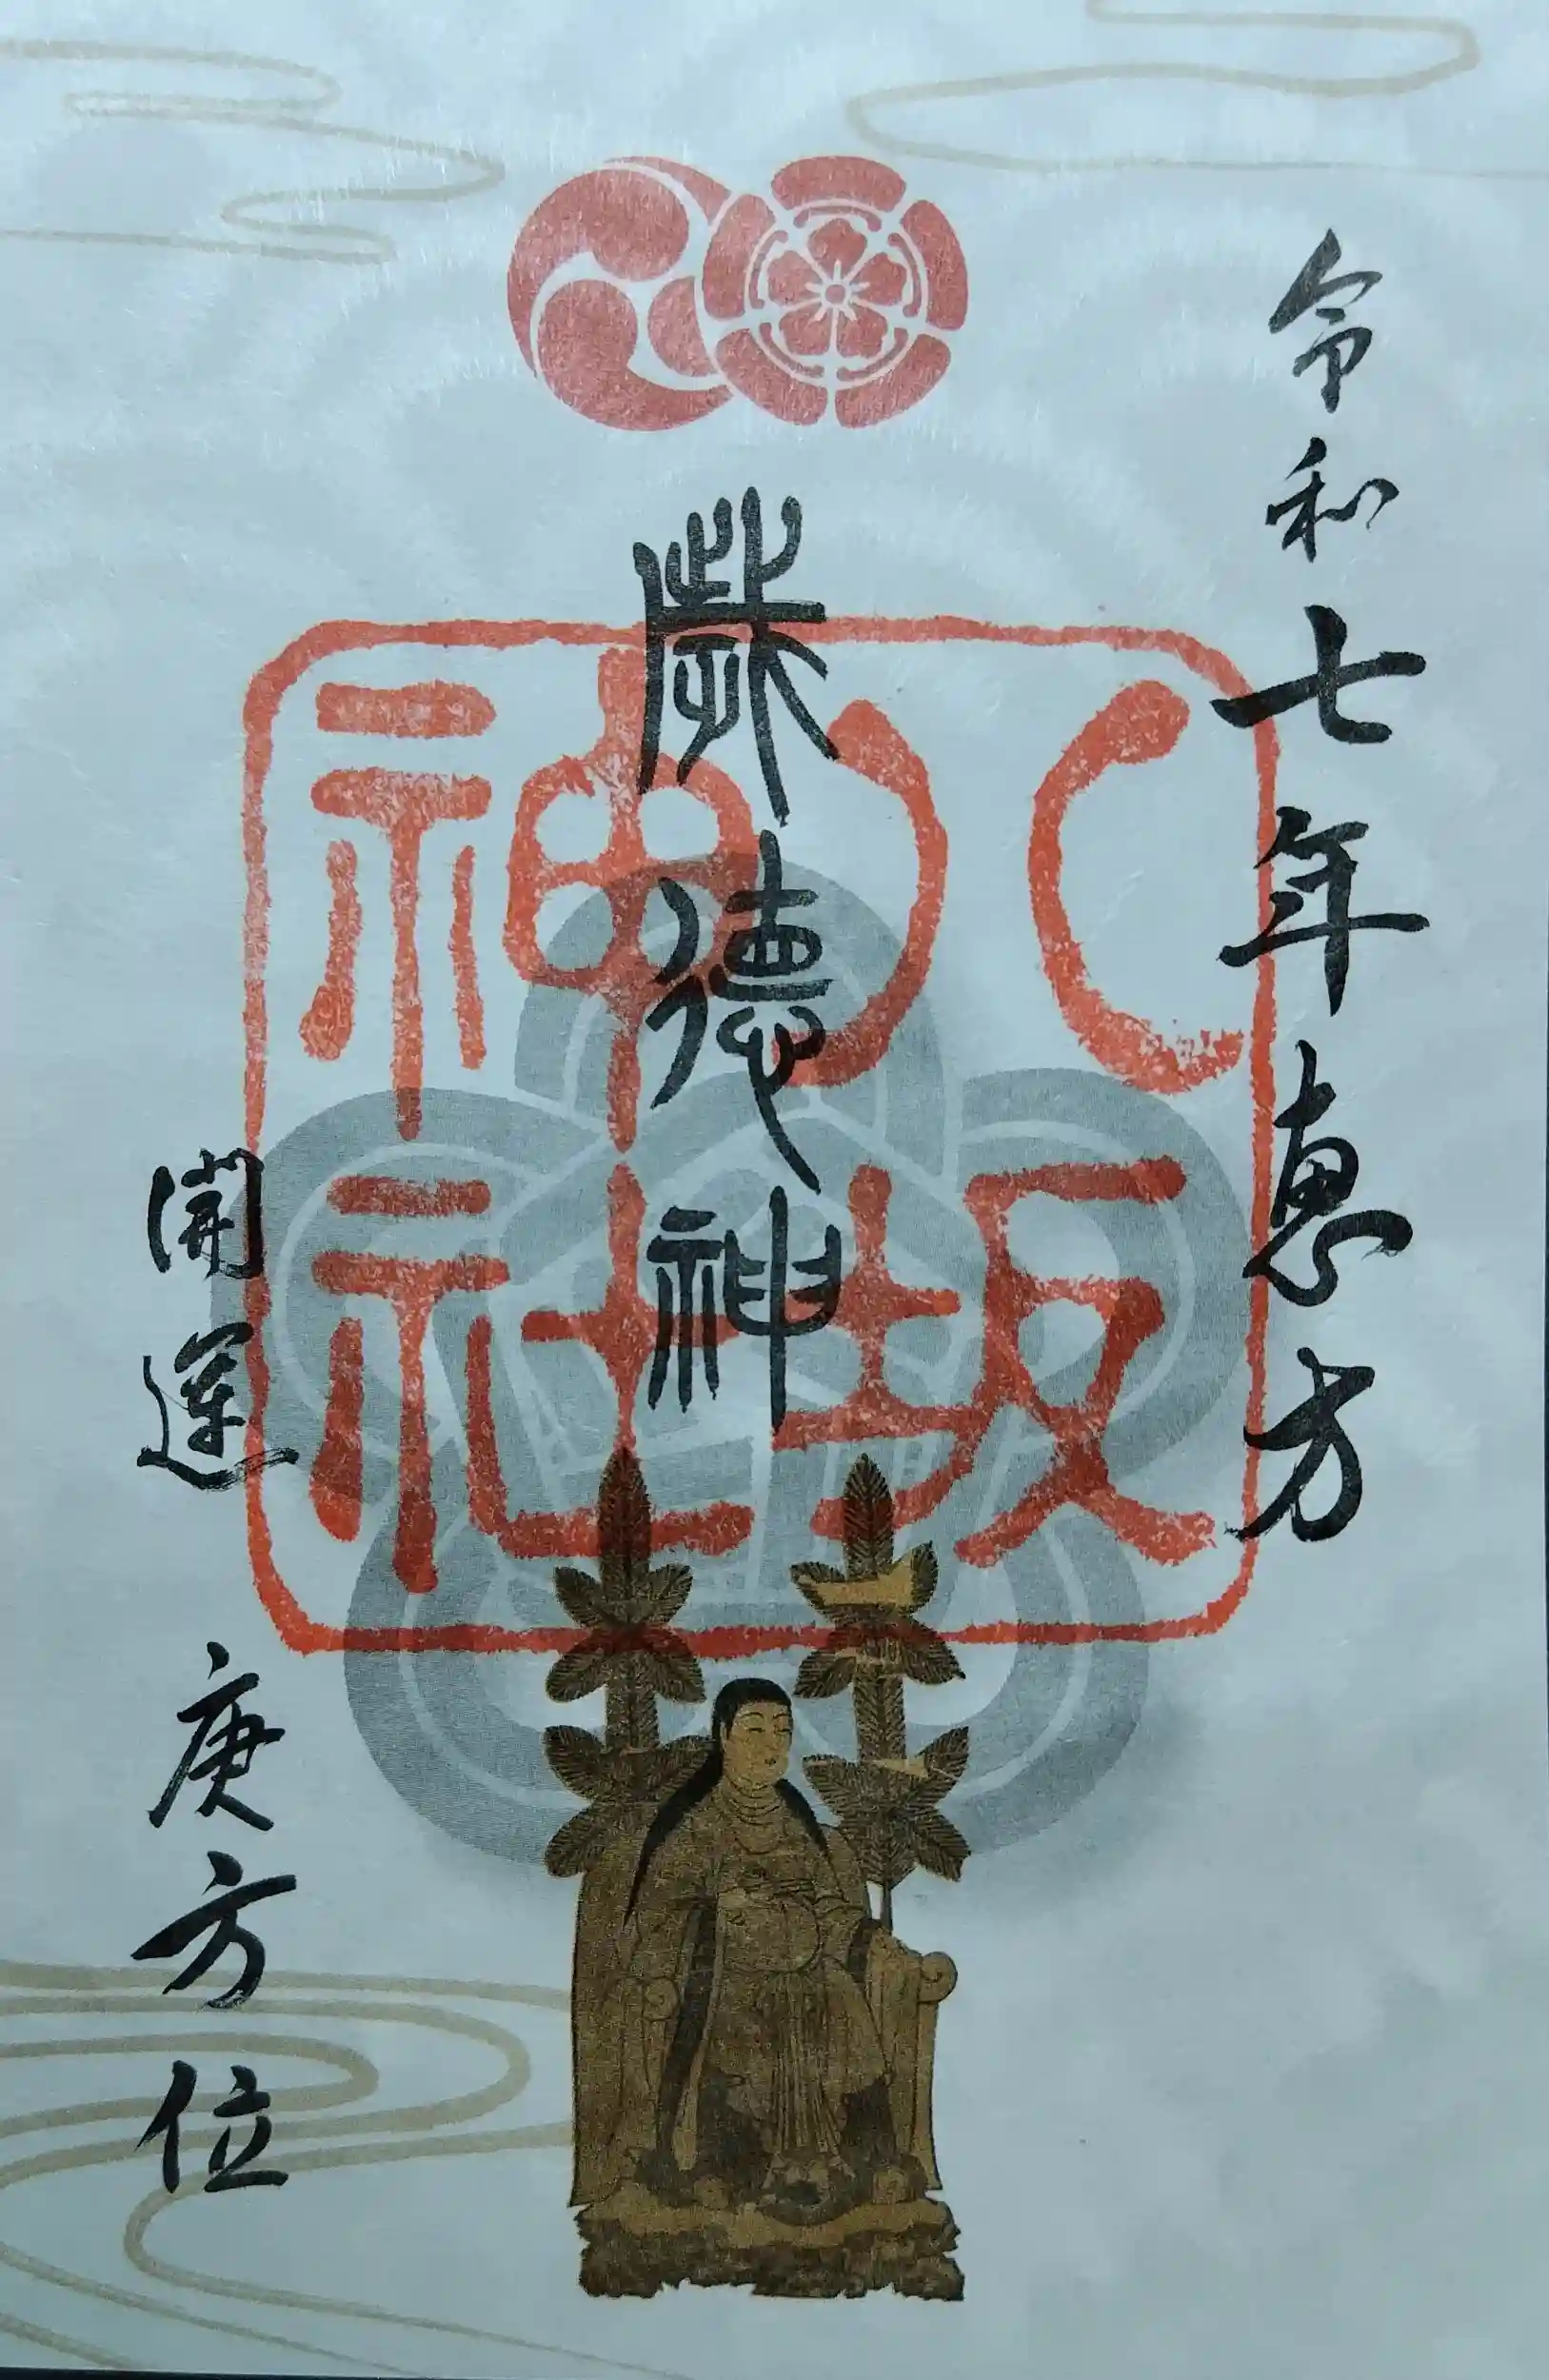 令和七年恵方
歳徳神
開運 庚方位
八坂
神社